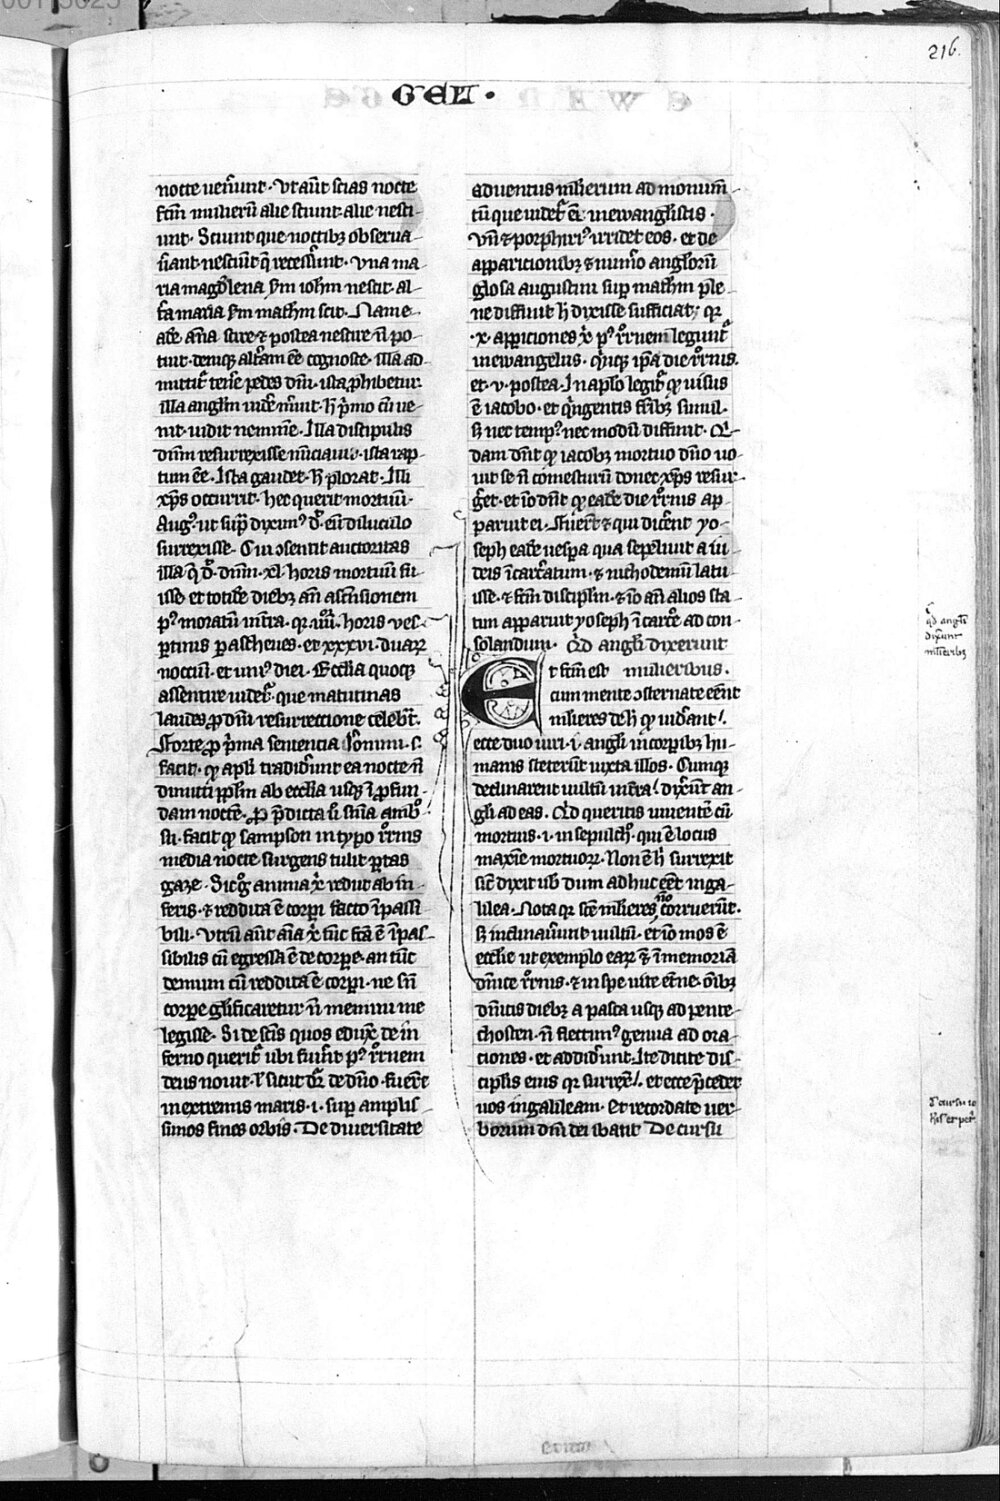 216.
GEN.
nocte uen̄unt. Vt aut̄ scias nocte
sc̄m mulierū alie sciunt alie nesci-
unt. Sciunt que noctibꝫ obserua-
ūant nesciūt q̄ recesserunt. Vna ma-
ria magd̓lena sm̄ ioh̄m nescit. al-
t̓a maria sm̄ math̄m scit. Nam e-
adē aīa scire ⁊ postea nescire n̄ po-
tuit. deniqꝫ alt̓am eē cognosce. illa ad-
mittit̓ tenē pedes dn̄i. ista ꝓhibetur.
illa angl̄m uid̓e m̓uit. h̓ p̓mo cū ue-
nit uidit neminē. Illa discipulis
dn̄m resurrexisse nūciauit. ista rap-
tum eē. Ista gaudet. h̓ plorat. Illi
xp̄s occurrit. hec querit mortuū.
Augꝰ. ut sup̓ diximꝰ d̓. eū diluculo
surrexisse. Cui ↄsentit auctoritas
illa q̄ d̓. dn̄m .xl. horis mortuū fu-
isse. et totidē diebꝫ an̄ ascensionem
pꝰ moratū int̓ra. qr̓ .iiii. horis ves-
ꝑtinis pasceues. et xxxvi. duaꝝ
noctiū. et uniꝰ diei. Ecclia quoqꝫ
assentire uidet̓. que matutinas
laudes ꝓ dn̄i resurrectione celebrat̓.
Forte ꝓ p̓ma sentencia Ieronimi .s.
facit. qꝫ apl̄i tradid̓unt ea nocte n̄
dimitti ppl̄m ab ecclia usqꝫ ī ꝓfun-
dam noctē. ꝓ p̄dicta u̓ sn̄ia ambro-
sii. facit qꝫ sampson in typo rr̄nis
media nocte surgens tulit portas
gaze. Sic̓ g̓ anima x̄ rediit ab in-
feris. ⁊ reddita ē corpi facto īpassi-
bili. Vtrū aut̄ aīa x̄ tūc fc̄a ē īpas-
sibilis cū egressa ē de corpe. an tūc
demum cū reddita ē corpi. ne sn̄
corpe gl̓ificaretur n̄ memini me
legisse. Si de scīs quos eduxit̓ de in-
ferno querit̓ ubi fuer̄t pꝰ rr̄nem
deus nouit. ł sicut dr̄ de dn̄o. fuer̄t
in extremis maris .i. sup̓ amplis-
simos fines orbis. De diuersitate
aduentus ml̓ierum ad monum̄-
tū que uidet̓ eē in ewangl̓istis.
Vn̄ ⁊ porphiriꝰ irridet eos. et de
apparicionibꝫ ⁊ num̓o angl̓orū
glosa augustini sup̓ math̄m ple-
ne diffinit h̓ dixisse sufficiat; qꝫ
.x. appiciones x̄ pꝰ rr̄nem legunt̓
in ewangeliis. quīqꝫ ip̄a die rr̄nis.
et .v. postea. In ap̄lo legit̓ qꝫ uisus
ē iacobo. et qn̓gentis fr̄ibꝫ simul.
s̓ nec tempꝰ nec modū diffinit. Qͥ-
dam dn̄t qꝫ iacobꝫ mortuo dn̄o uo-
uit se n̄ comesturū donec xp̄s resur-
g̓et. et iō dn̄t qꝫ eadē die rr̄nis ap-
paruit ei. Fuer̄t ⁊ qui dic̓ent yo-
seph eadē uespa qua sepeliuit a iu-
deis īcarc̓atum. ⁊ nichodemū latu-
isse. ⁊ sc̄m discipl̄m. ⁊ iō an̄ alios sta-
tim apparuit yoseph ī carc̓e ad con-
solandum. Qd̓ angl̓i dixerunt
Et factum est mulieribus.
cum mente ↄsternate eēnt
ml̓ieres de h̓ qꝫ uid̓ant.
ecce duo uiri .i. angl̓i in corpibꝫ hu-
manis steter̄t iuxta illos. Cumqꝫ
declinarent uultū in t̓ra. dixer̄t an-
gl̓i ad eas. Qd̓ queritis uiuentē cū
mortuis .i. in sepulchͦ. qui ē locus
maxīe mortuoꝝ. Non ē h̓ surrexit
sic̄ dixit uob̓ dum adhuc eēt in ga-
lilea. Nota qꝫ sc̄e ml̓ieres nō corruer̄t.
s̓ inclinauerunt uultū. et iō mos ē
ecclie ut exemplo eaꝝ ⁊ ī memoriā
dn̄ice rr̄nis. ⁊ in spe uite et̓ne. oīibꝫ
dn̄icis diebꝫ a pasca usqꝫ ad pente-
chosten. n̄ flectimꝰ genua ad ora-
ciones. et addid̓unt. Ite dicite dis-
cipl̓is eius qꝫ surrex̄. et ecce p̄cedet
uos in galileam. Et recordate uer-
borum dn̄i dei ibant De cursu
qd̓ angl̓i
dixerunt
ml̓ieribꝫ
D̓ cursu io
h̓is et pet̓